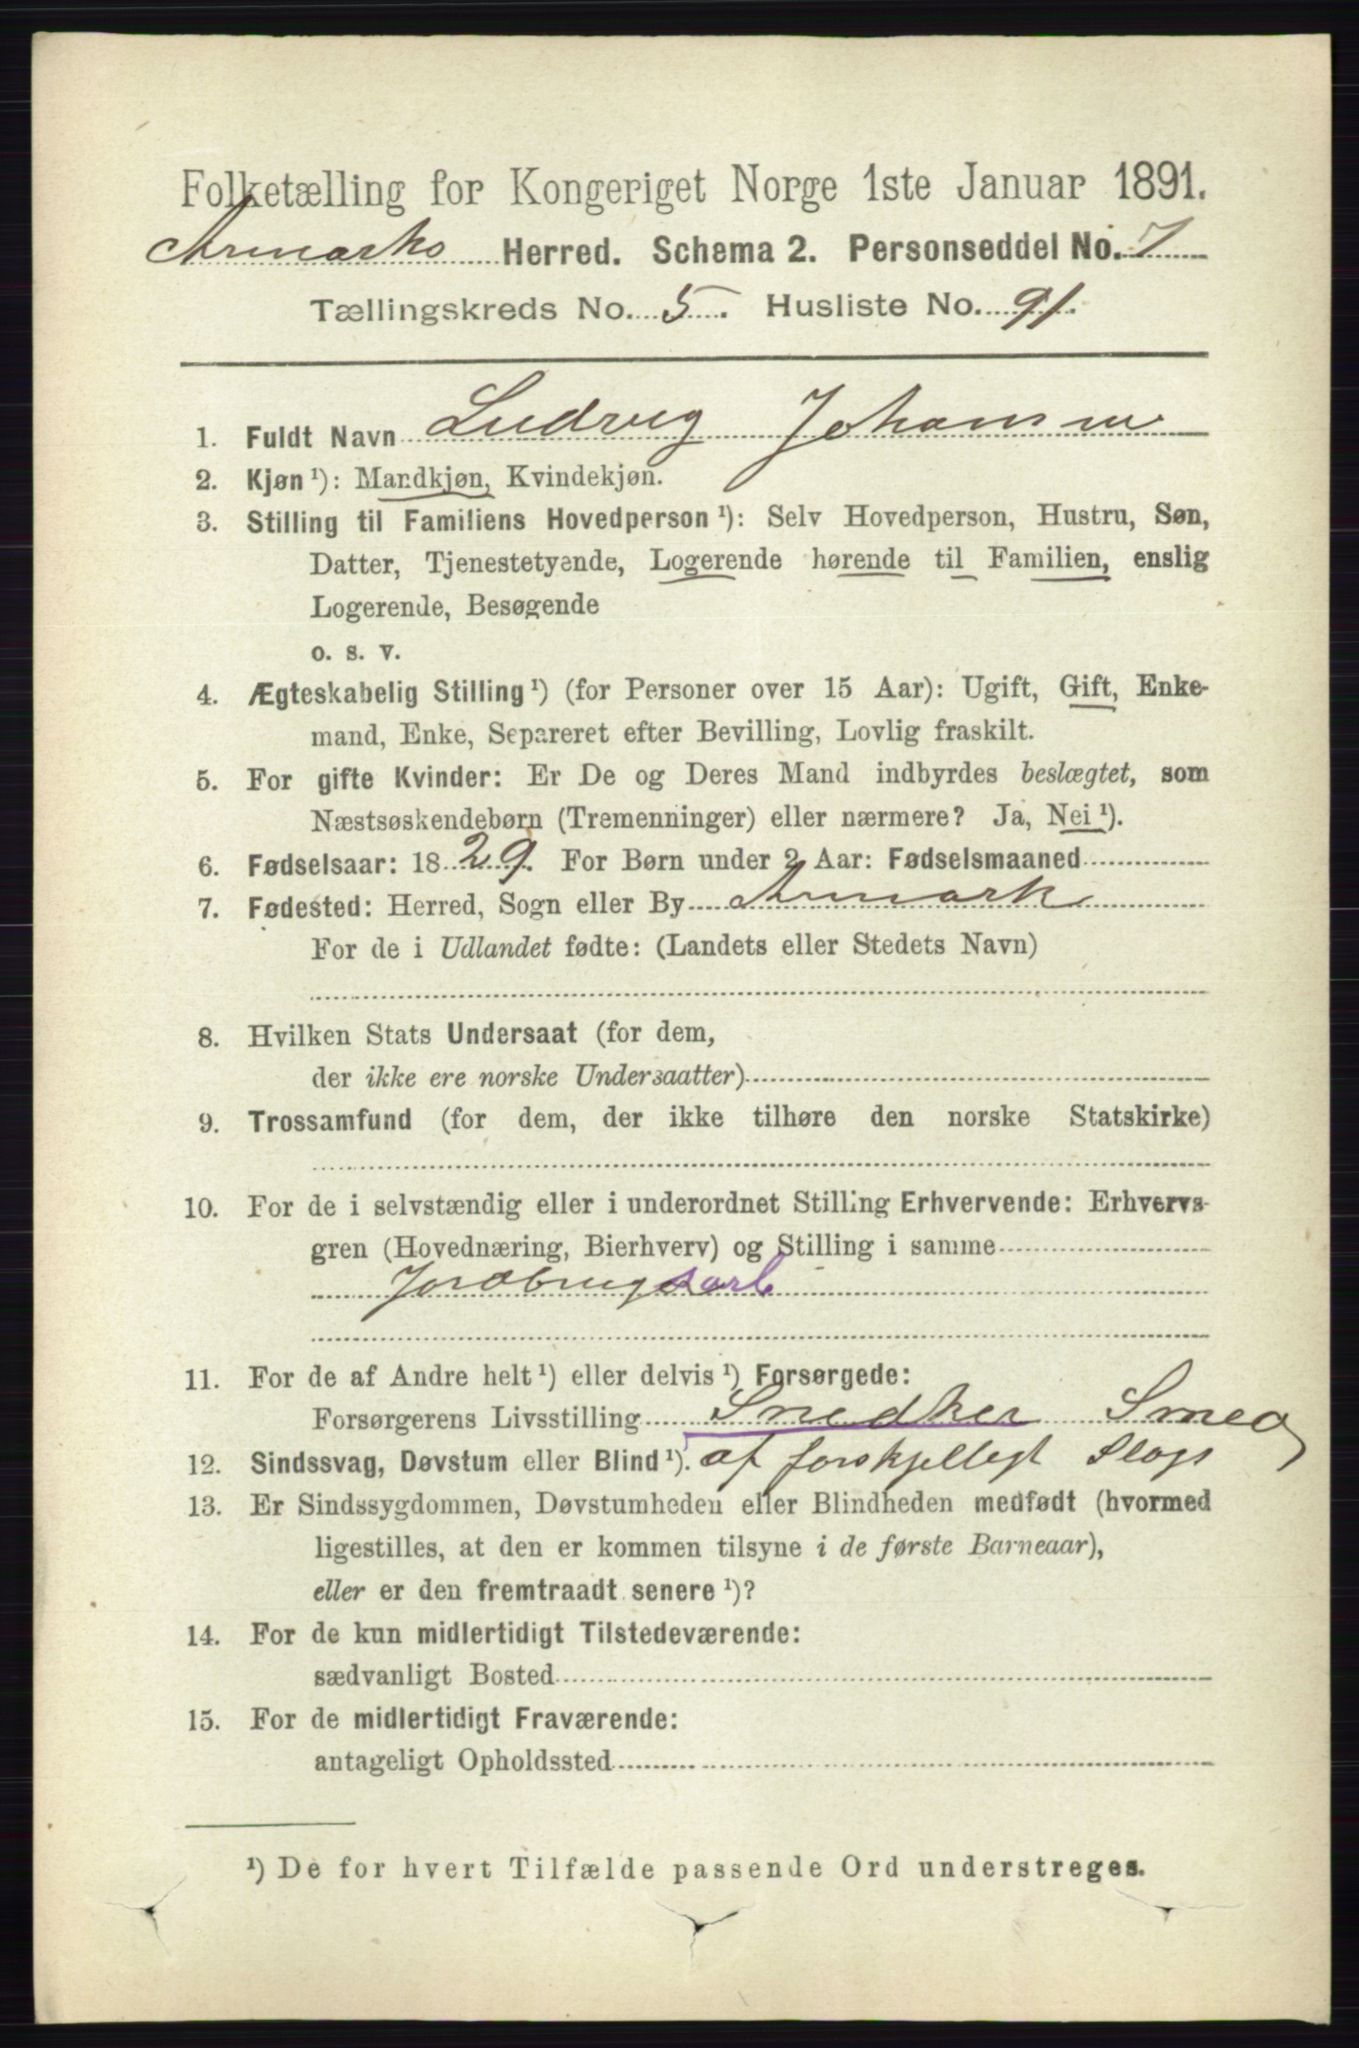 Folketælling for Kongeriget Norge 1ste Januar 1891.
Aremarks Herred. Schema 2. Personseddel No. 7
Tællingskreds No. 5. Husliste No. 91.
1. Fuldt Navn Ludvig Johansen
2. Kjøn ¹): Mandkjøn, Kvindekjøn.
3. Stilling til Familiens Hovedperson ¹): Selv Hovedperson, Hustru, Søn,
Datter, Tjenestetyende, Logerende hørende til Familien, enslig
Logerende, Besøgende
o. s. v.
4. Ægteskabelig Stilling ¹) (for Personer over 15 Aar): Ugift, Gift, Enke-
mand, Enke, Separeret efter Bevilling, Lovlig fraskilt.
5. For gifte Kvinder: Er De og Deres Mand indbyrdes beslægtet, som
Næstsøskendebørn (Tremenninger) eller nærmere? Ja, Nei ¹).
6. Fødselsaar: 1829. For Børn under 2 Aar: Fødselsmaaned
7. Fødested: Herred, Sogn eller By Aremark
For de i Udlandet fødte: (Landets eller Stedets Navn)
8. Hvilken Stats Undersaat (for dem,
der ikke ere norske Undersaatter)
9. Trossamfund (for dem, der ikke tilhøre den norske Statskirke)
10. For de i selvstændig eller i underordnet Stilling Erhvervende: Erhvervs-
gren (Hovednæring, Bierhverv) og Stilling i samme
Jordbrugsarb
11. For de af Andre helt ¹) eller delvis ¹) Forsørgede:
Forsørgerens Livsstilling Snedker Smed
12. Sindssvag, Døvstum eller Blind ¹). af forskjelligt Slags
13. Er Sindssygdommen, Døvstumheden eller Blindheden medfødt (hvormed
ligestilles, at den er kommen tilsyne i de første Barneaar),
eller er den fremtraadt senere ¹)?
14. For de kun midlertidigt Tilstedeværende:
sædvanligt Bosted
15. For de midlertidigt Fraværende:
antageligt Opholdssted
¹) De for hvert Tilfælde passende Ord understreges.